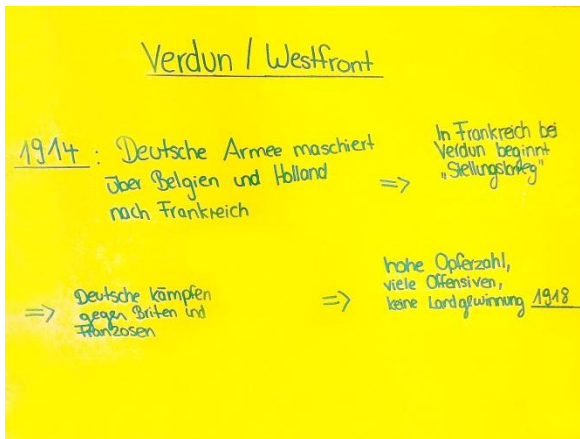 Verdun / Westfront
1914 : Deutsche Armee maschiert
über Belgien und Holland
nach Frankreich
=> In Frankreich bei
Verdun beginnt
„Stellungskrieg"
=> Deutsche kämpfen
gegen Briten und
Franzosen
=> hohe Opferzahl,
viele Offensiven,
keine Landgewinnung 1918